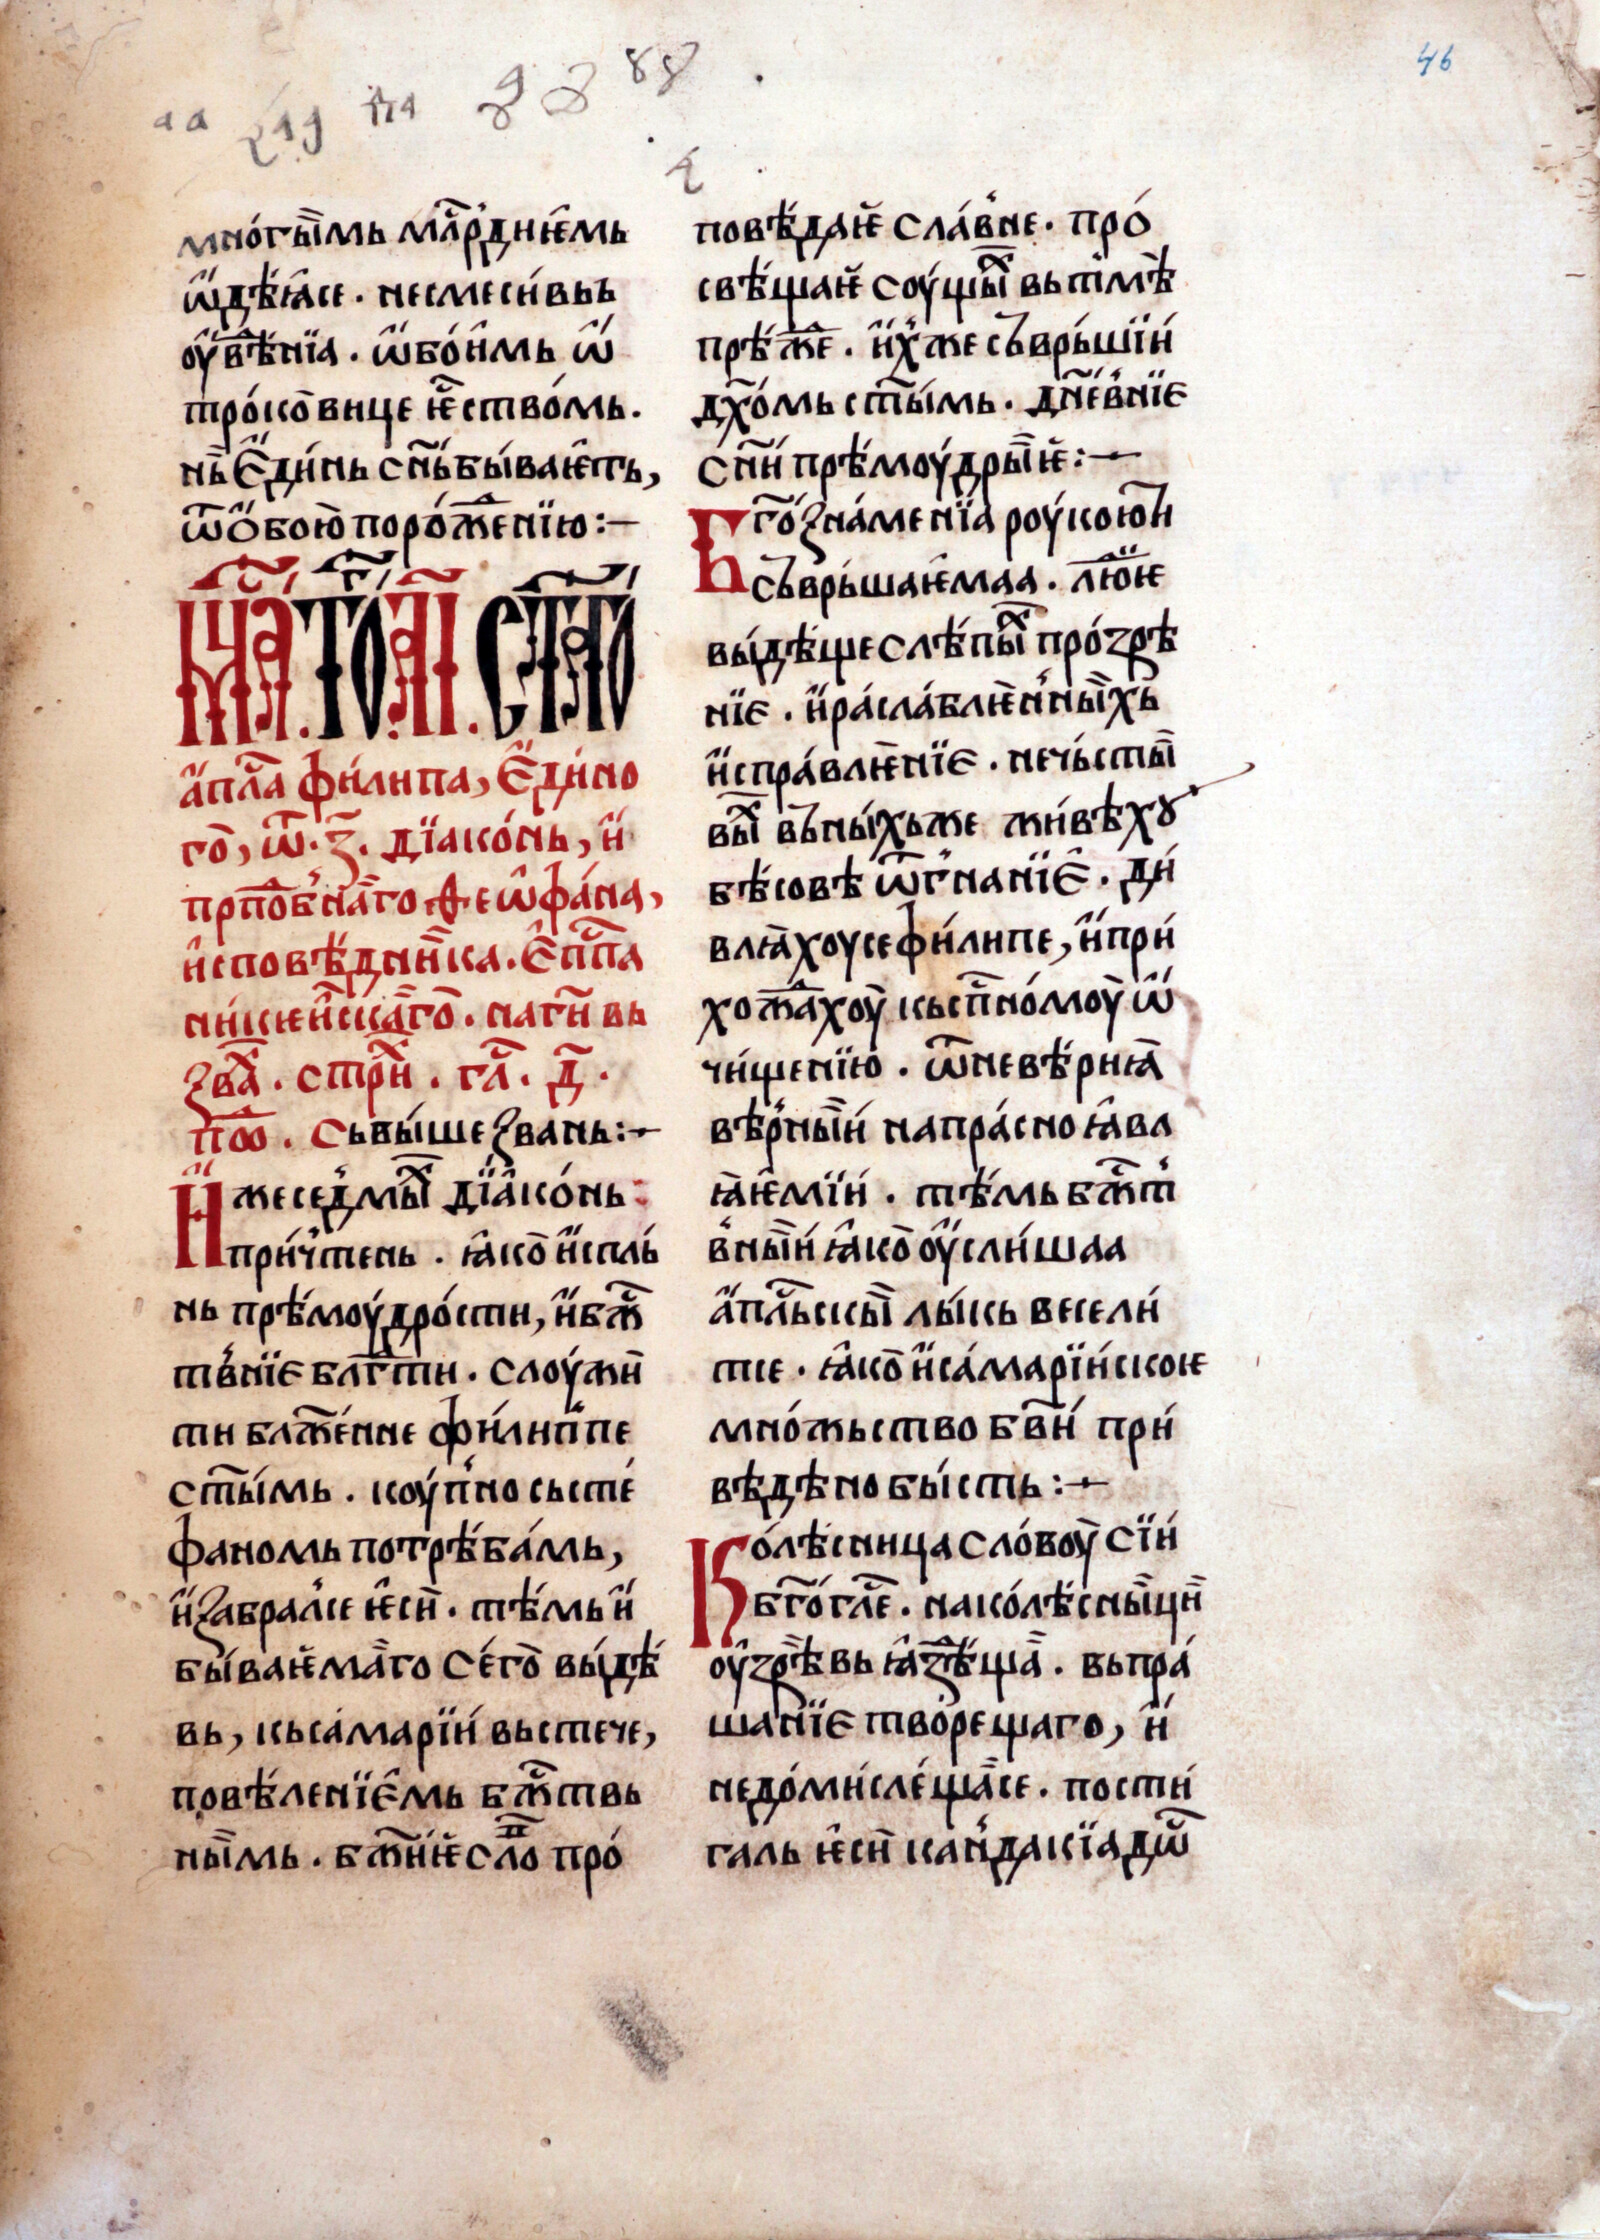 46
88
мно́гы̏мь мл҃рⷣнѥ̑мь
ѿдѣꙗ̑се · несмеси́вьь
ѹ҆вѣ́нїа · ѡ҆бо́и̑мь ѿ
тро́ко̀вице ѥ҆ство́мь ·
нь̀ є҆ди́нь сн҃ь бы́ваѥ̑ть,
ѿѻбою̀ поро́ж҃енїю :—
мц҃а то́ г҃і · ст҃а́го
а҆пⷭ҇ла фи́липа, є҆ди́но
го̀, ѿ · з҃ · дїако́нь, и҆
прⷣпо́б̾наго ѳеѡфа́на,
и҆сповѣ́дни̏ка · є҆пⷭ҇па
ни́кѥи҆ска̏го̀ · на г҃и вь
зваⷯ · стр҃иⷯ · гл҃ · д҃ ·
поⷣ · Сьвы́ше звань :—
И҆же се́д̾мыⷯ дїа̑ко́нь
при́ч̾тень · ꙗ̑ко̀ и҆спль́
нь прѣ́моу́дро́сти, и҆ бжⷭ҇
тв̾нїє блг҃ти · слоу́жи̏
ти блаж҃е́нне фи́лип̾пе
ст҃ы́мь · коу́п̾но сь сте́
фаномь потрѣ́ба́мь,
и҆збрал̾се ѥ҆си̏ · тѣ́мь и҆
бы́ваѥ҆ма̏го се́го̀ вы́дѣ́
вь, кь са́марїи́ вьстече,
повѣ́ленїє̑мь бжⷭ҇твь
ны̏мь · бж҃и́ѥ҆ слоⷡ про́
повѣ́даѥ҆ сла́в̾не · про́
свѣ́щаѥ҆ соу́щыⷯ вь т̾мѣ̀
прѣ́ж҃е · и҆х̾же съврь́шїи́
дх҃о́мь ст҃ы́мь · дн҃е́в̾нїє
сн҃и прѣ́моу́дры̏ѥ҆ :—
Бг҃о́зна́менїа роу́кою́ т̾и
съврь́шаѥ̑маа · лю́ⷣїѥ
вы́дѣ́ще слѣ́пыⷯ про́зрѣ
нїє · и҆ ра́сла́блѥ̀н̾ны̏хь
и҆спра́влѥ̀нїє · нечь́сты̏
выⷯ въ ны́хьже жи́вѣ́хꙋ
бѣ́совѣ ѿг̾нанїє̑ · ди́
влꙗ̀хоусе фи́липе, и҆ при́
хож҃а́хоу̀ кь сп҃но́моу̀ ѡ҆
чи́щенїю · ѿ невѣ́рнꙗ̀
вѣ́р̾ны̏и́ напра́сно ꙗ̑вл
ꙗ̀ѥ̑мїи́ · тѣ́мь бжⷭ҇т̾
в̾ны̏и́ ꙗ̑ко̀ ѹ҆сли́шаа
а҆пⷭ҇льскы̏ лы́кь весели́
тсе · ꙗ̑ко̀ и҆ са́марїи́скоѥ
мно́жьство бв҃и́ при́
вѣ́дѣ́но бы́сть :—
Ко́лѣ́сница сло́воу̀ сїи́
бг҃о́гл҃е · на ко́лѣ́сны̏ци̏
ѹ҆зрѣ̀вь ꙗ̑з̾дѣ́ща̏ · вьпра́
шанїє творе́щаго, и҆
недо́мы́сле́ща̏се · пости́
галь ѥ҆си̏ кан̾дакїа дѡ̑